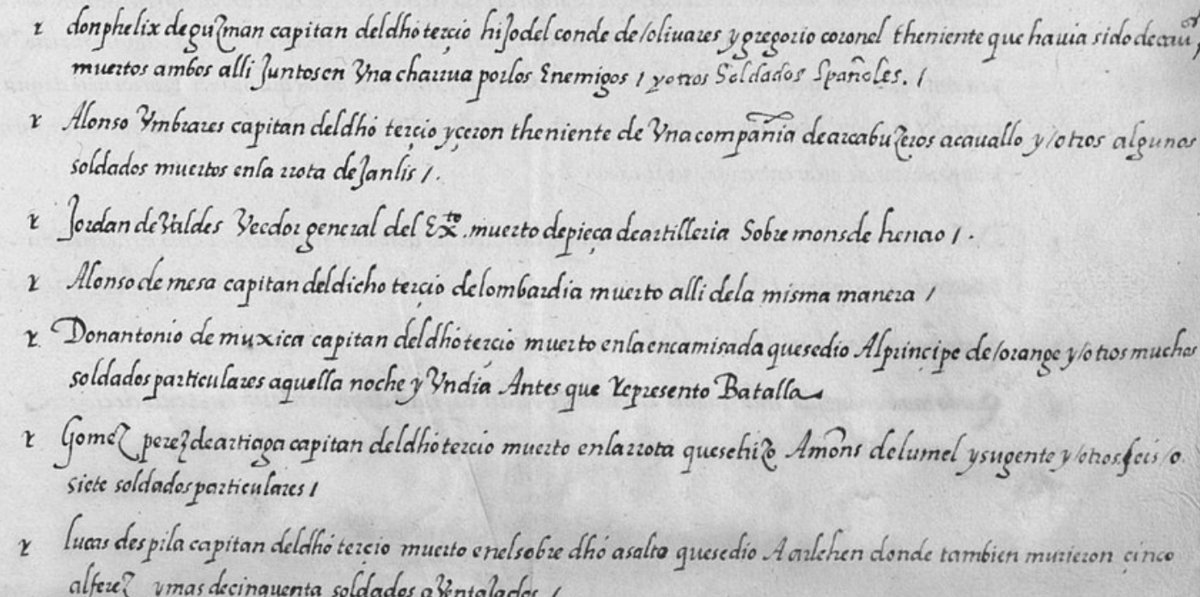 don phelix de guzman capitan del dho terçio hijo del conde de olivares y gregorio coronel theniente que havia sido de cavos
muertos ambos alli Juntos en Vna charrua por los Enemigos / y otros Soldados Españoles. /
Alonso Ymbrares capitan del dhó terçio y çeron theniente de Vna compañia de arcabuzeros a cavallo y/otros algunos
soldados muertos en la rrota de Janlis /.
Jordan de Valdes Veedor general del Exto. muerto de pieça de artilleria Sobre mons de henao / .
Alonso de mesa capitan del dicho terçio de lombardia muerto alli de la misma manera /
Don antonio de muxica capitan del dhó terçio muerto en la encamisada que se dio Al prinçipe de/orange y/otros muchos
soldados particulares aquella noche y Vn dia Antes que rrepresento Batalla
Gomez perez de artiaga capitan del dhó terçio muerto en la rrota que se hizo A moñs de lumel y su gente y/otros seis /o
siete soldados particulares /
lucas de spila capitan del dhó terçio muerto en el sobre dhó asalto que se dio A arlehen donde tambien murieron çinco
alferez y mas de cinquenta soldados aVentajados /